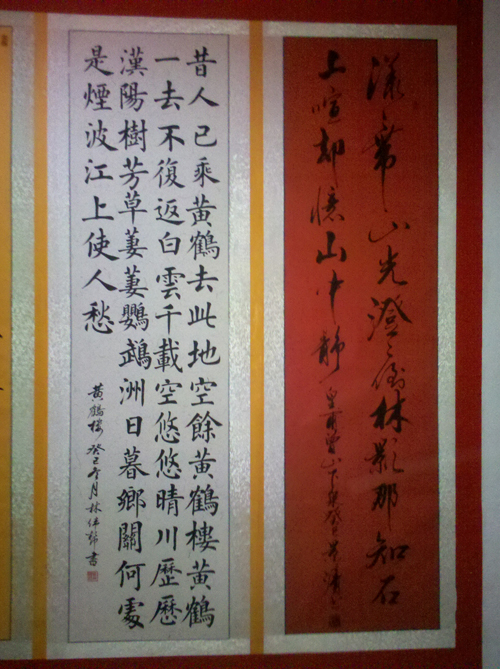 漾々帶山光澄々倒林影那知石
上喧却憶山中靜
皇甫曾山下泉癸巳
昔人已乘黃鶴去此地空餘黃鶴樓黃鶴
一去不復返白雲千載空悠悠晴川歷歷
漢陽樹芳草萋萋鸚鵡洲日暮鄉關何處
是煙波江上使人愁
黃鶴樓 癸巳冬月 林書